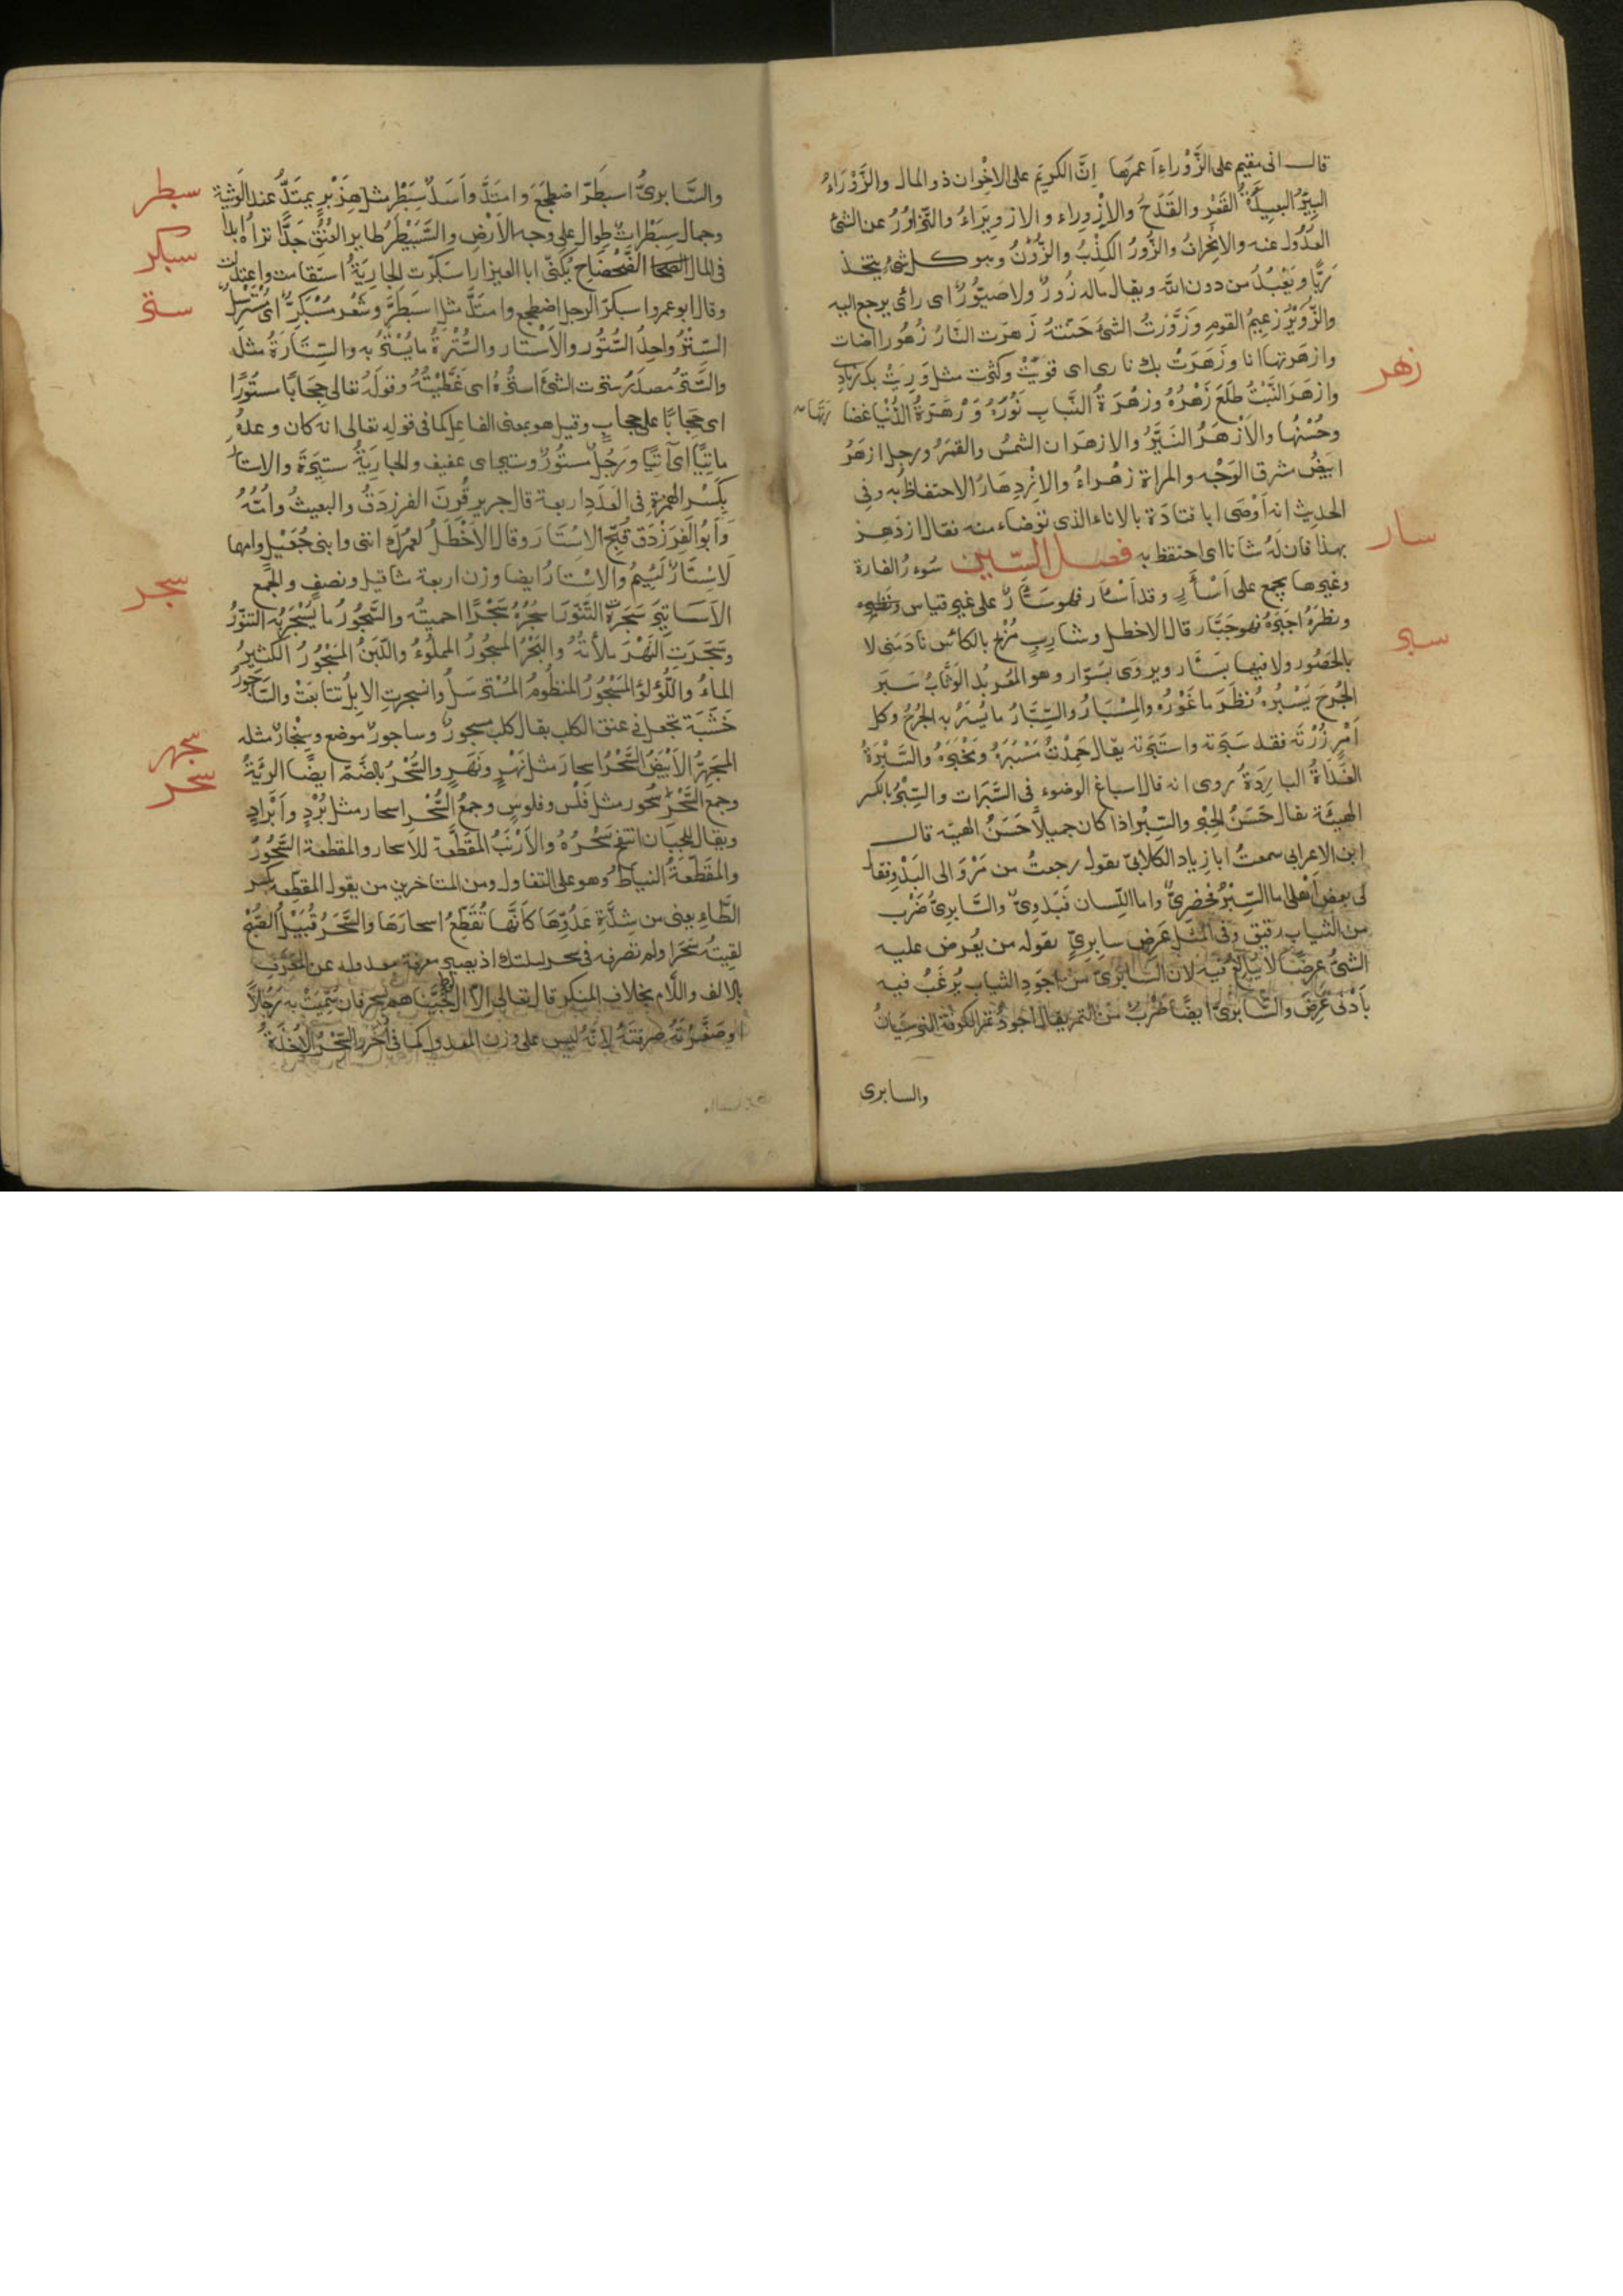 قال انى مقيم على الزَّوْراءِ اَعمرها اِنَّ الكريَم على الاِخْوان ذو المال والزَّوْرَاءُ
البِيْرُ البعِيدَةُ القَعْرِ والقَدَحُ والاِزْوِراء والازوِيرَاءُ والتَّزاوُرُ عن الشئ
العُدُول عنه والانحِرافُ والزُّورُ الكِذْبُ والزُّوْنُ وهو كل شئ يتخذ
رَبًّا ويَعْبُدُ من دون الله ويقال ماله زُورٌ ولا صَيُّورٌ اى رائ يرجع اليه
والزُّوَيْرُ زعِيمُ القوم وزَوَّرْتُ الشئ حَسَّنتهُ زَهَرت النَّارُ زُهُورا اضات
وازهرتها انا وزَهَرَتْ بك نارى اى قوِيَتْ وكثرت مثل وَرِيَتْ بك زِنادِى
وازهَرَ النَّبْتُ طَلَعَ زَهْرُهُ وزهْرَةُ النَّباتِ نَوْرُهُ وزَهْرَةُ الدُّنيا غضا رتها
وحُسْنُها والاَزْهَرُ النَّيِّرُ والازهَرَان الشمسُ والقمرُ ورجل ازهَرُ
ابيَضُ مشرق الوَجْه والمراة زهْراءُ والازْدِهَارُ الاحتفاظ به وفى
الحديث انه اَوْصَى ابا قتادَة بالاناء الذى توضاء منه فقال ازدَهِر
بهذا فان لَهُ شانا اى احتفظ به فصل السّين سُوءرُ الفارة
وغيرها يجمع على اَسْأَرٍ وقد اَسْأَر فهو سَئَّارٌ على غير قياس ونظيره
ونظرهُ اجبَرهُ فهو جَبَّار قال الاخطل وشارِبٍ مُرْبِح بالكأس نادَمَنِى لا
بالحَصُور ولا فيها بسَئَّار ويروى بسَوّار وهو المُعربدُ الوَثَّابُ سَبَر
الجُرحَ يَسْبُرهُ نظَرَ ما غَوْرُهُ والمِسْبَارُ والسِّبَارُ ما يُسْبَرُ به الجُرحُ وكل
اَمْرٍ رُزْتَه فقد سَبَرته واستَبَرته يقال حَمِدْتُ مَسْبَرَهُ ومَخْبَرهُ والسَّبْرَةُ
الغَدَاةُ البارِدَةُ روى انه قال اسباغ الوضوء فى السَّبَرات والسِّبْرُ بالكسر
الهيئَة يقال حَسَنُ الحِبْرِ والسِّبْرِ اذا كان جميلاً حَسَنُ الهيئه قال
ابن الاعرابى سمعتُ ابا زياد الكلابىَّ يقول رجعتُ من مَرْوَ الى البَدْوِ فقال
لى بعض اَهْلى اما السِّبْرُ فحَضَرِىٌّ واما اللِّسان فبَدَوِىٌّ والسَّابِرِىُّ ضَرْب
من الثياب رقيق وفى المثل عَرض سابِرِىٍّ يقوله من يُعرض عليه
الشئُ عرضًا لا يُبَالغ فيه لان السابرىَّ من اجوَدِ الثياب يُرغَبُ فيه
بأَدْنَى عَرْضٍ والسَّابرىُّ ايضًا ضَرْبٌ من التمر يقال اجودُ تمر الكوفة النرسِيَانُ
والسابرى
زهر
سار
سبر
والسَّابرىُّ اسبَطَرّ اضطجَعَ وامتَدَّ واَسَدٌ سِبَطْر مثل هِزَبْرٍ يمتَدُّ عند الوَثْبة
وجمال سِبَطْراتٌ طِوال على وجه الاَرْضِ والسَّبَيْطَرُ طاير العُنُق جَدًّا تراهُ ابدًا
فى المال الضَّحْضَاح يُكنّى ابا العيزار اسبَكرّت الجارِيَةُ استقامت واعتدلت
وقال ابوعمرو اسبكرّ الرجل اضطجع وامتَدَّ مثل اسبَطَرَّ وشَعْر مُسْبَكِرٌّ اى مُسْتَرسِلٌ
السِّتْرُ واحِدُ السُّتُور والاَسْتار والسُّتْرةُ ما يُسْتَرُ به والسِّتَارَةُ مثلُه
والسَّتْرُ مصدَرُ سترت الشئ استُرهُ اى غَطَّيْتُهُ وقولَهُ تعالى حِجَابًا مستورًا
اى حِجَابًا على حجابٍ وقيل هو بمعنى الفاعل كما فى قوله تعالى انه كان وعدهُ
ماتِيًّا اى آتيًا ورَجُلٌ مستُورٌ وستير اى عفيف والجارِيَةُ ستِيرَة والاستار
بِكَسْر الهمزةِ فى العَدَدِ اربعة قال جرير قُرِنَ الفرزدَقُ والبعيثُ واُمُّهُ
وَاَبُو الفرَزْدَق قُبِّح الاِسْتَار وقال الاَخْطَلُ لعَمْرُكَ اننى وابنى جُعَيْلٍ وامها
لاَسْتَارٌ لَئِيمُ والاِسْتارُ ايضا وزن اربعة مثاقيل ونصفٍ والجمع
الاَسَاتِيرَ سَجَرتُ التَّنُّورَ اسجُرُهُ سَجْرًا احميتُه والسَّجُورُ ما يُسْجَرُ به التنوُّرُ
وسَجَرَتِ النَهْرَ ملأتُهُ والبَحْرُ المسجُورُ المملُوءُ واللَّبَنُ المَسْجُورُ الكثيرُ
الماءُ واللُّؤلؤُ المَسْجُورُ المنظُومُ المُسْترسَلُ وانسجرتِ الاِبلُ تتابعَتْ والسَّاجورُ
خَشَبَة تجعل فى عنق الكلب يقال كلب مسجورٌ وساجورٌ موضع وسِنْجارٌ مثله
المسجَهِرُّ الاَبْيَضُ السَّحْرُ اسحارَ مثل نهْرٍ ونَهَرٍ والسُّحْرُ بالضمّ ايضًا الرِيَّةُ
وجمع السَّحْرِ سُحُور مثل فَلْس وفلوسٍ وجمعُ السُّحْرِ اسحار مثل بُرْدٍ واَبْرَادٍ
ويقال للجَبَان انتفخ سَحْرُهُ والاَرْنَبُ المُقَطَّعةِ للاسحار والمقطعة السُّحُورُ
والمُقَطَّعَةُ النياط وهو على التفاول ومن المتاخرين من يقول المقطِّعة بكسر
الطَّاءِ يعنى من شِدَّةِ عَدْوِهَا كاَنَّها تُقَطِّعُ اسحارَهَا والسَّحَرُ قُبَيْلَ الصُّبْحِ
لقِيتُه سَحَرَ ولم تصرفه فى سحر ليلتك اذ يصير معرفة معدوله عن المُعَرَّفِ
بالالف واللَّام بخلاف المنكر قال تعالى اِلاّ آل لوط نجَّيْناهم بسحر فان سَمَّيْتَ به رَجُلاً
او صَغَّرْتَهُ صرفتَهُ لاَنَّهُ ليس على وزن المعدول كما فى اُخَرَ والسِّحْرُ الاُخْذَةُ
سبطر
سبكر
ستر
سجر
سجهر
سحر